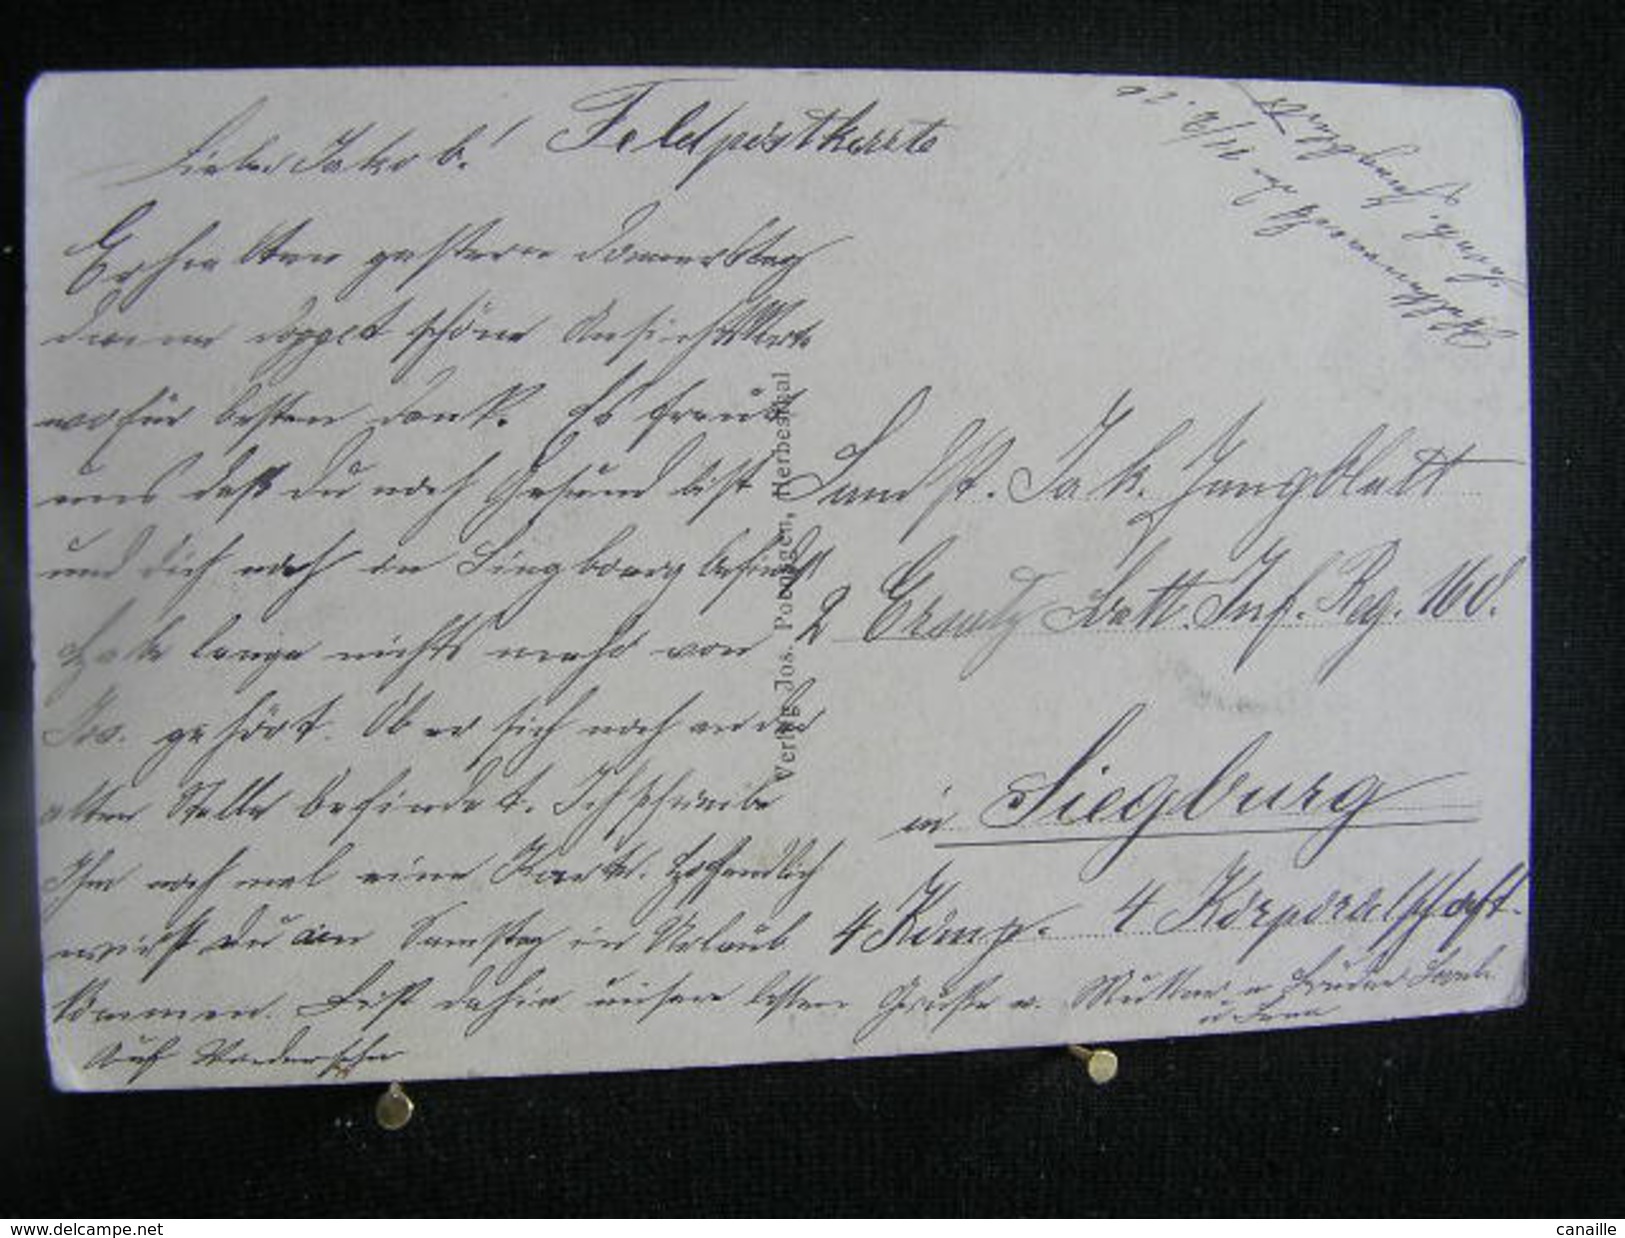 Feldpostkarte
Lieber Jakob!
Erhielten gestern Donnerstag
deine doppelt schöne Ansichtskarte
wofür besten Dank. Es freut
uns daß du noch Gesund bist
und dich noch in Siegbourg befindst
Habe lange nichts mehr von
Jos. gehört. Ob er sich noch an der
alten Stelle befindet. Ich schreibe
Ihm noch mal eine Karte. Hoffendlich
wirst du am Samstag in Urlaub
kommen. Bist dahin unsere besten Grüße v. Mutter u Brüder
Auf Wiedersehn
Landst. Jak. Jungblutt
2 Ersatz Batt. Inf. Reg. 160.
in Siegburg
4 Komp. 4 Körporalschaft.
Verlag Jos. Pothagen, Herbesthal
www.delcampe.net
canaille